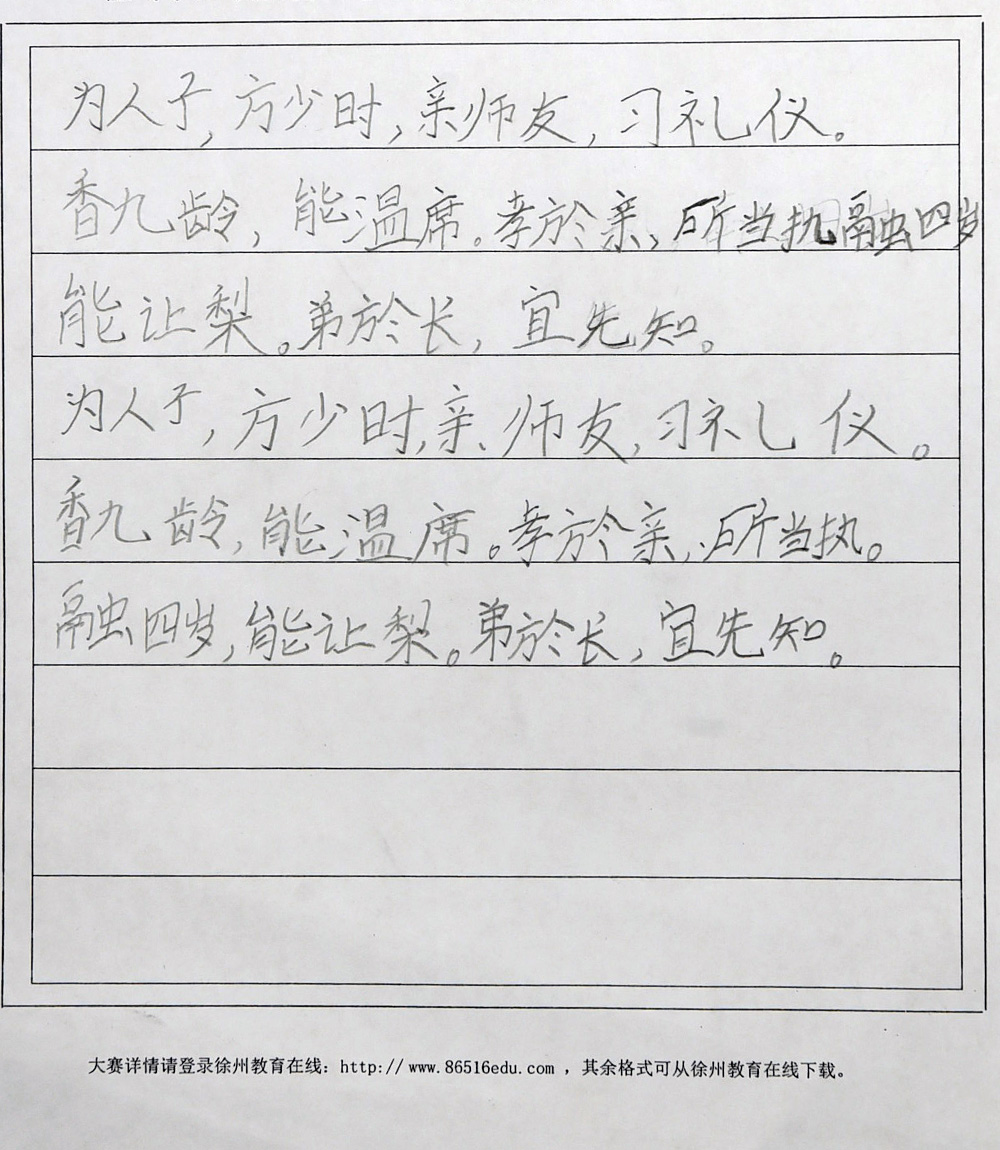 为人子,方少时,亲师友,习礼仪。
香九龄,能温席。孝於亲,所当执融四岁
能让梨。弟於长,宜先知。
为人子,方少时,亲师友,习礼仪。
香九龄,能温席。孝於亲,所当执。
融四岁,能让梨。弟於长,宜先知。
大赛详情请登录徐州教育在线：http://www.86516edu.com ，其余格式可从徐州教育在线下载。